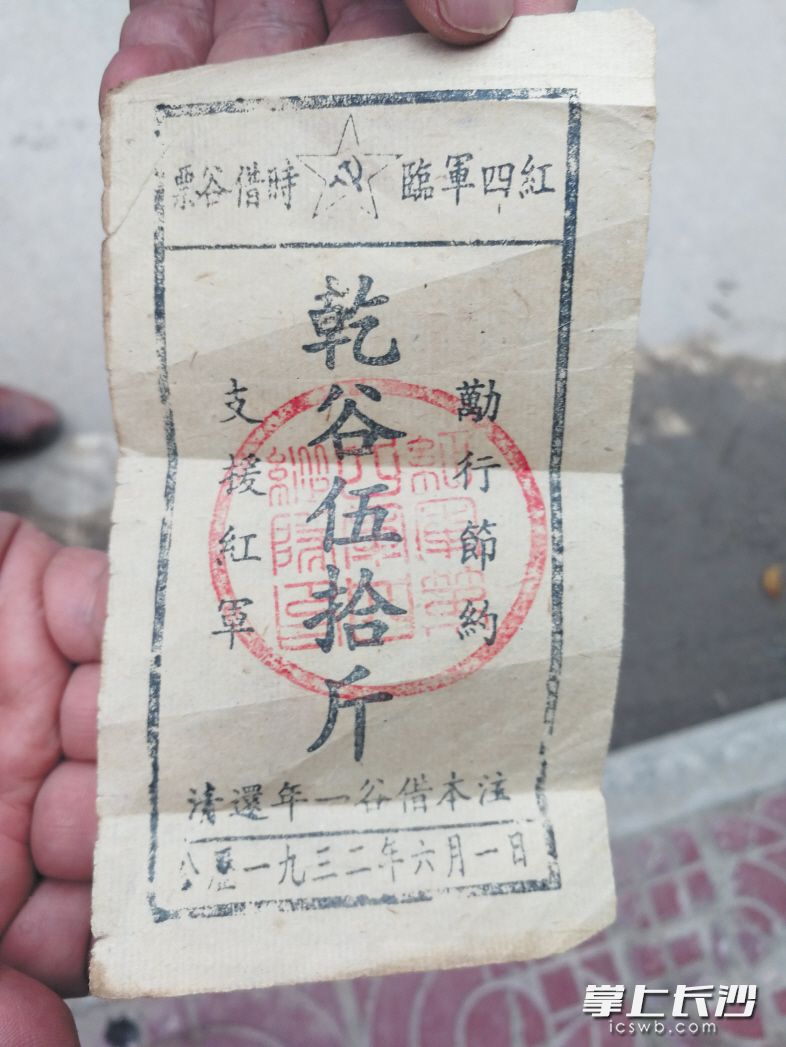 紅四軍臨時借谷票
勱行節約
乾谷伍拾斤
支援紅軍
注本借谷一年還清
公歷一九三二年六月一日
掌上长沙
icswb.com